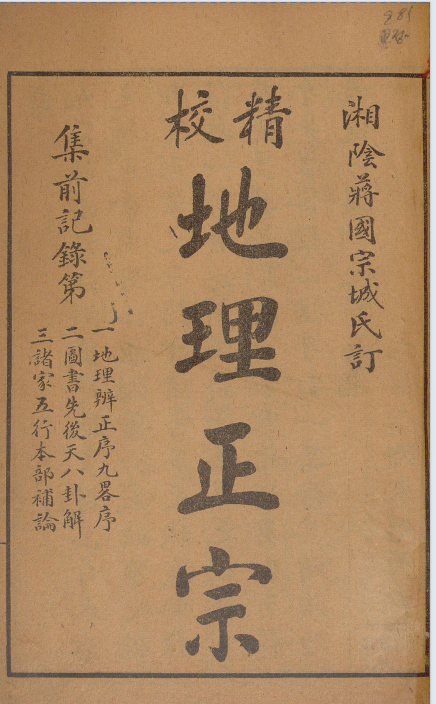 湘陰蔣國宗城氏訂
精校
地理正宗
集前記錄第
一地理辨正序九畧序
二圖書先後天八卦解
三諸家五行本部補論